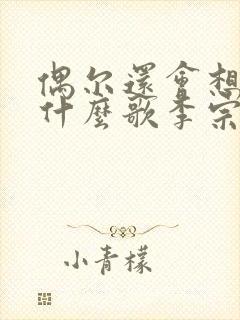 偶尔還會想
什麼歌李宗
小青檬